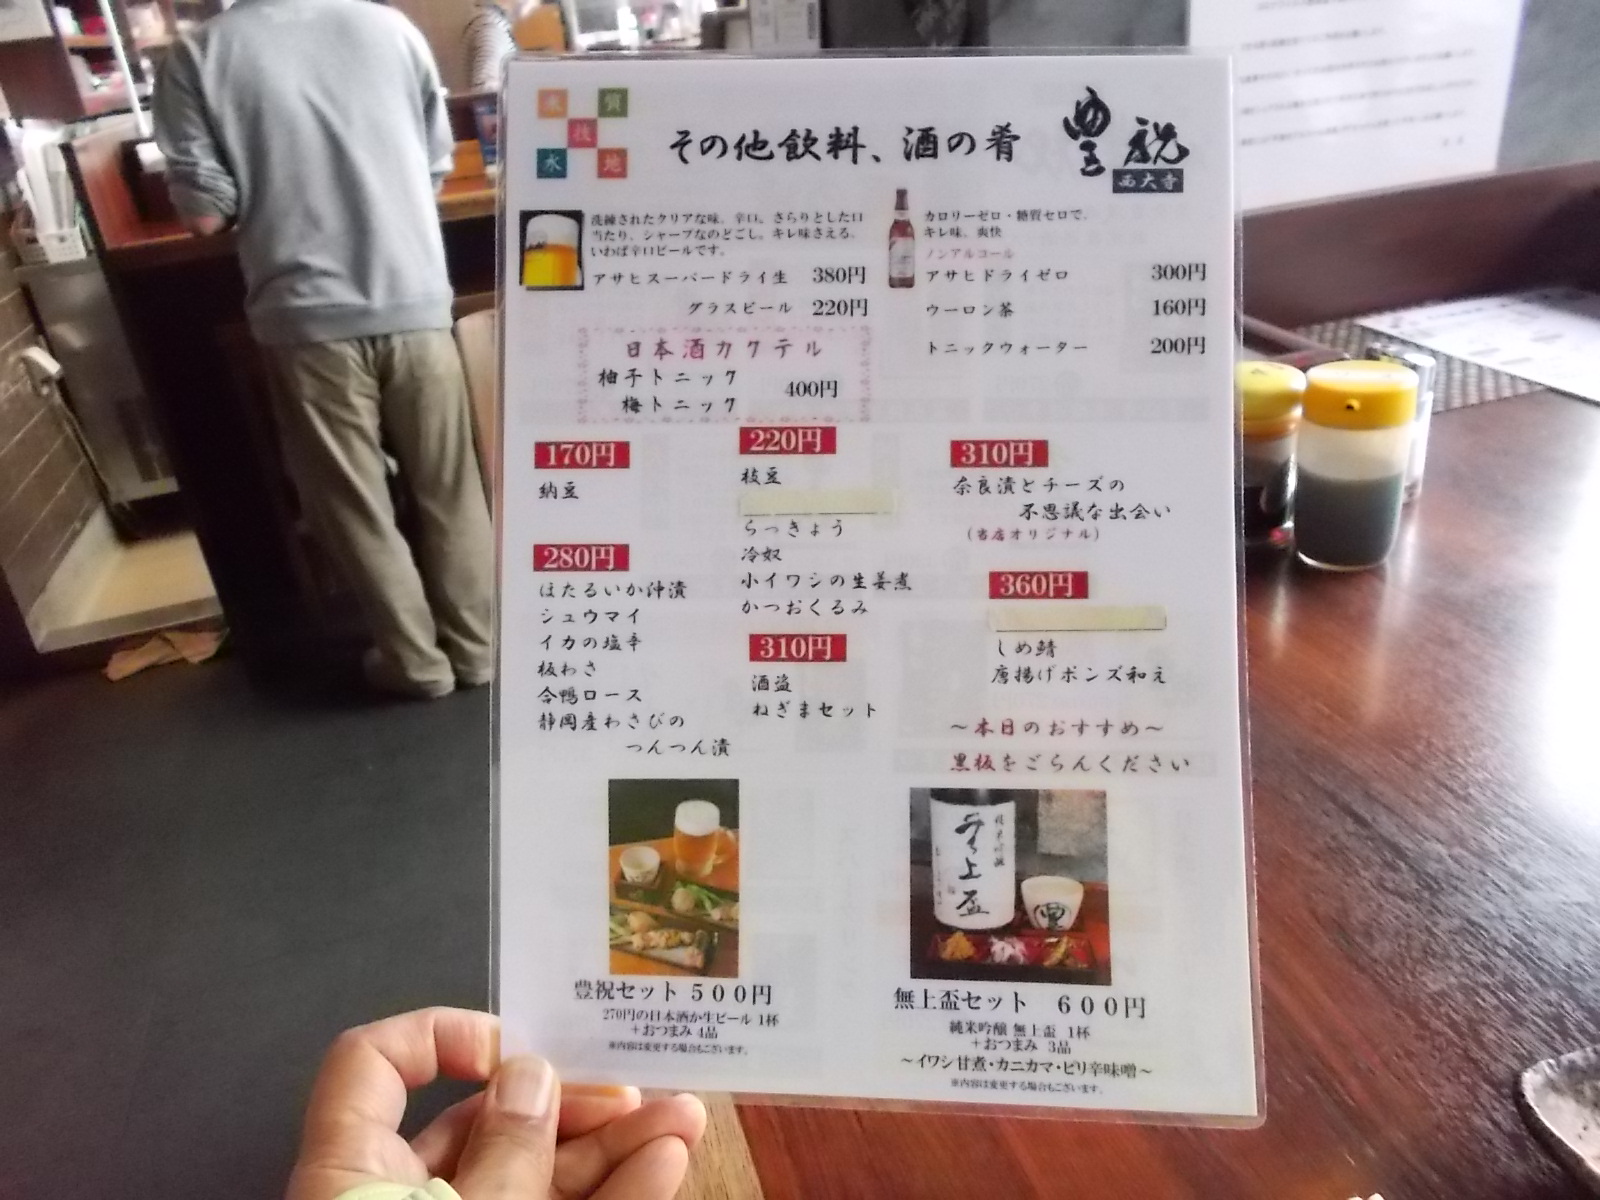 米 質
技
水 地
その他飲料、酒の肴
豊祝
西大寺
洗練されたクリアな味、辛口。さらりとした口
当たり、シャープなのどごし。キレ味さえる、
いわば辛口ビールです。
アサヒスーパードライ生 380円
グラスビール 220円
カロリーゼロ・糖質ゼロで、
キレ味、爽快
ノンアルコール
アサヒドライゼロ 300円
ウーロン茶 160円
トニックウォーター 200円
日本酒カクテル
柚子トニック
梅トニック
400円
170円
納豆
280円
ほたるいか沖漬
シュウマイ
イカの塩辛
板わさ
合鴨ロース
静岡産わさびの
つんつん漬
220円
枝豆
らっきょう
冷奴
小イワシの生姜煮
かつおくるみ
310円
酒盗
ねぎまセット
310円
奈良漬とチーズの
不思議な出会い
(当店オリジナル)
360円
しめ鯖
唐揚げポンズ和え
～本日のおすすめ～
黒板をごらんください
豊祝セット 500円
270円の日本酒か生ビール 1杯
+おつまみ 4品
※内容は変更する場合もございます。
無上盃
無上盃セット 600円
純米吟醸 無上盃 1杯
+おつまみ 3品
～イワシ甘煮・カニカマ・ピリ辛味噌～
※内容は変更する場合もございます。